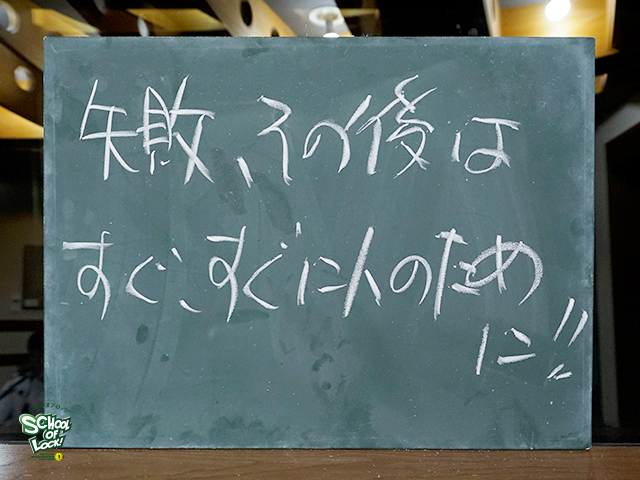 失敗、その後は
すぐ、すぐに人のため
に!!
SCHOOL
OF
LOCK!